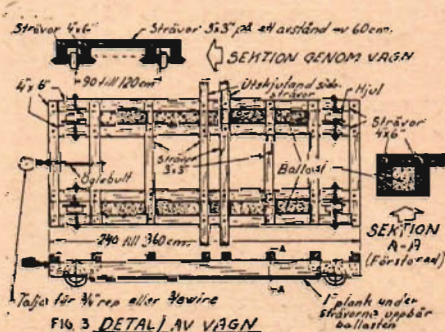 Strävor 4"x6"
Strävor 3"x3" på ett avstånd av 60cm.
SEKTION GENOM VAGN
90 till 120cm
Utskjutand sido-
strävor
Hjul
4"x 6"
Strävor
4x6"
Strävor
3"x3"
Ballast
Öglebult
SEKTION
A-A
(Förstorad)
240 till 360cm.
A
A
Talja för ¾ rep eller ⅜wire
1" plank under
strävorna uppbär
ballasten
FIG. 3 DETALJ AV VAGN